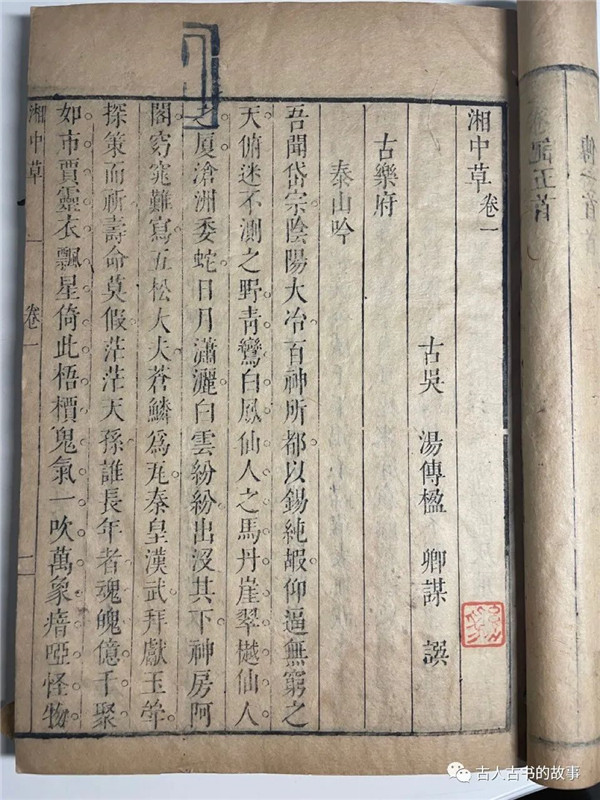 湘中草卷一
古吳 湯傳楹 卿謀 譔
古樂府
泰山吟
吾聞岱宗陰陽大冶百神所都以錫純嘏仰逼無窮之
天俯迷不測之野青鸞白鳳仙人之馬丹崖翠樾仙人
之厦滄洲委蛇日月瀟灑白雲紛紛出沒其下神房阿
閣窈窕難寫五松大夫蒼鱗為瓦秦皇漢武拜獻玉斝
探策而祈壽命莫假茫茫天孫誰長年者魂魄億千聚
如市賈靈衣飄星倚此梧檟鬼氣一吹萬象瘖啞怪物
湘中草 卷一 一
記五首
古人古书的故事